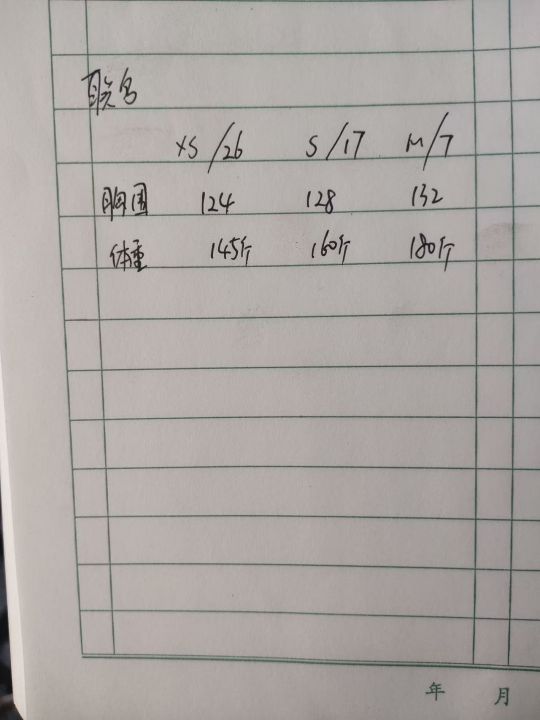 联名
XS/26 S/17 M/7
胸围 124 128 132
体重 145斤 160斤 180斤
年 月